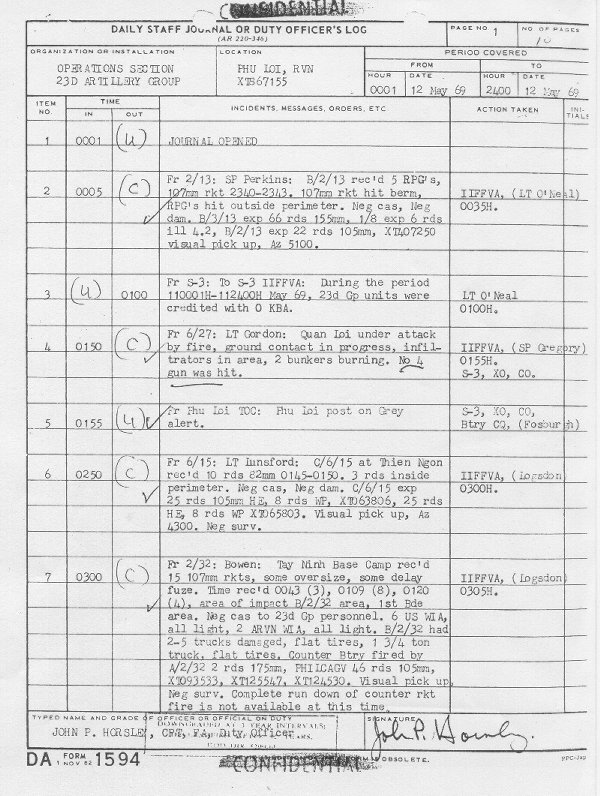 CONFIDENTIAL
DAILY STAFF JOURNAL OR DUTY OFFICER'S LOG
(AR 220-346)
PAGE NO. 1
NO. OF PAGES
10
ORGANIZATION OR INSTALLATION
OPERATIONS SECTION
23D ARTILLERY GROUP
LOCATION
PHU LOI, RVN
XT867155
PERIOD COVERED
FROM
TO
HOUR
DATE
HOUR
DATE
0001
12 May 69
2400
12 May 69
ITEM NO.
TIME
IN
OUT
INCIDENTS, MESSAGES, ORDERS, ETC.
ACTION TAKEN
INI-
TIALS
1
0001
(U)
JOURNAL OPENED
2
0005
(C)
Fr 2/13: SP Perkins: B/2/13 rec'd 5 RPG's,
107mm rkt 2340-2343. 107mm rkt hit berm,
RPG's hit outside perimeter. Neg cas, Neg
dam. B/3/13 exp 66 rds 155mm, 1/8 exp 6 rds
ill 4.2, B/2/13 exp 22 rds 105mm, XT407250
visual pick up, Az 5100.
IIFFVA, (LT O'Neal)
0035H.
3
(U)
0100
Fr S-3: To S-3 IIFFVA: During the period
110001H-112400H May 69, 23d Gp units were
credited with 0 KBA.
LT O'Neal
0100H.
4
0150
(C)
Fr 6/27: LT Gordon: Quan Loi under attack
by fire, ground contact in progress, infil-
trators in area, 2 bunkers burning. No 4
gun was hit.
IIFFVA, (SP Gregory)
0155H.
S-3, XO, CO.
5
0155
(U)
Fr Phu Loi TOC: Phu Loi post on Grey
alert.
S-3, XO, CO,
Btry CQ, (Fosburgh)
6
0250
(C)
Fr 6/15: LT Lunsford: C/6/15 at Thien Ngon
rec'd 10 rds 82mm 0145-0150. 3 rds inside
perimeter. Neg cas, Neg dam. C/6/15 exp
25 rds 105mm HE, 8 rds WP, XT063806, 25 rds
HE, 8 rds WP XT065803. Visual pick up, Az
4300. Neg surv.
IIFFVA, (Logsdon
0300H.
7
0300
(C)
Fr 2/32: Bowen: Tay Ninh Base Camp rec'd
15 107mm rkts, some oversize, some delay
fuze. Time rec'd 0043 (3), 0109 (8), 0120
(4), area of impact B/2/32 area, 1st Bde
area. Neg cas to 23d Gp personnel. 6 US WIA,
all light, 2 ARVN WIA, all light. B/2/32 had
2-5 trucks damaged, flat tires, 1 3/4 ton
truck, flat tires. Counter Btry fired by
A/2/32 2 rds 175mm, PHILCAGV 46 rds 105mm,
XT093533, XT125547, XT124530. Visual pick up
Neg surv. Complete run down of counter rkt
fire is not available at this time.
IIFFVA, (Logsdon)
0305H.
TYPED NAME AND GRADE OF OFFICER OR OFFICIAL ON DUTY
DOWNGRADED AT 3 YEAR INTERVALS;
JOHN P. HORSLEY, CPT, FA, Duty Officer
SIGNATURE
John P. Horsley
DA FORM 1594
1 NOV 62
CONFIDENTIAL
OBSOLETE.